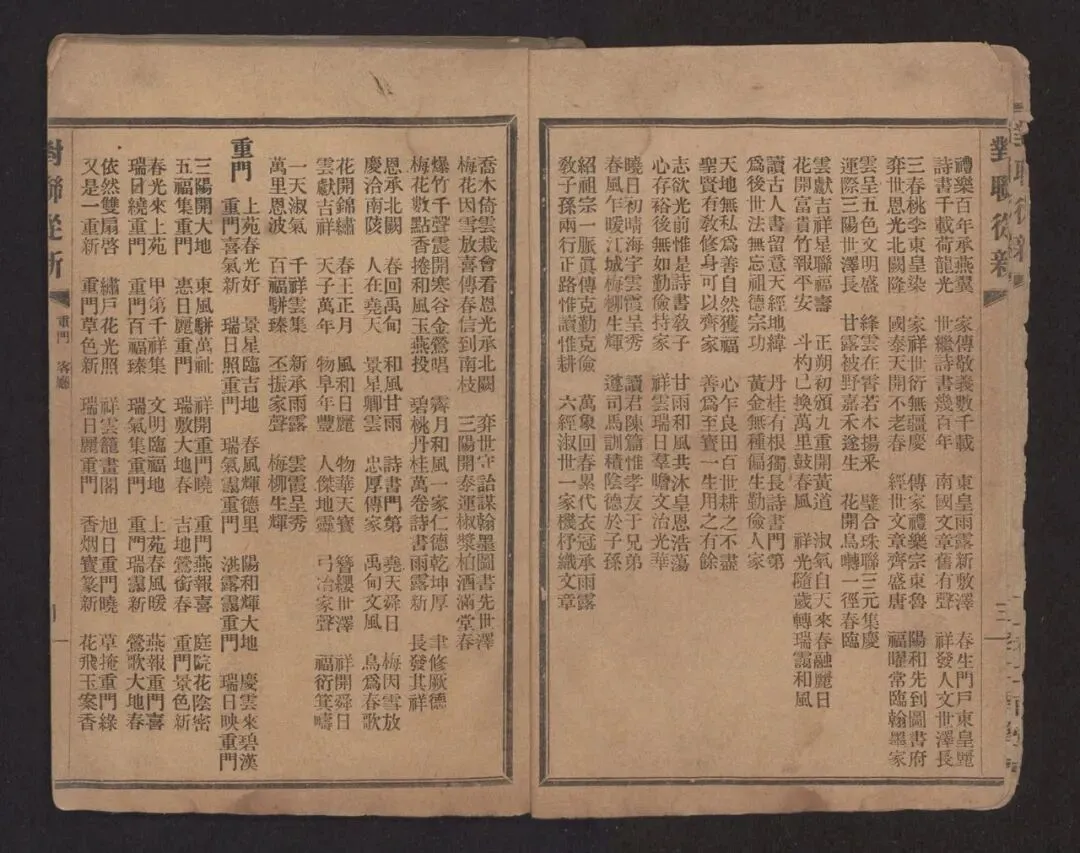 對聯從新
禮樂百年承燕翼 家傳敬義數千載 東皇雨露新敷澤 春生門戶東皇麗
詩書千載荷龍光 世繼詩書幾百年 南國文章舊有聲 祥發人文世澤長
三春桃李東皇染 家祥世衍無疆慶 傳家禮樂宗東魯 陽和先到圖書府
弈世恩光北闕隆 國泰天開不老春 經世文章齊盛唐 福曜常臨翰墨家
雲呈五色文明盛 絳雲在霄若木揚釆 璧合珠聯三元集慶
運際三陽世澤長 甘露被野嘉禾遂生 花開鳥囀一徑春臨
雲獻吉祥星聯福壽 正朔初頒九重開黃道 淑氣自天來春融麗日
花開富貴竹報平安 斗杓已換萬里鼓春風 祥光隨歲轉瑞靄和風
讀古人書留意天經地緯 丹桂有根獨長詩書門第
爲後世法無忘祖德宗功 黃金無種偏生勤儉人家
天地無私爲善自然獲福 心乍良田百世耕之不盡
聖賢有敎修身可以齊家 善爲至寶一生用之有餘
志欲光前惟是詩書敎子 甘雨和風共沐皇恩浩蕩
心存裕後無如勤儉持家 祥雲瑞日羣瞻文治光華
曉日初晴海宇雲霞呈秀 讀君陳篇惟孝友于兄弟
春風乍暖江城梅柳生輝 遵司馬訓積陰德於子孫
紹祖宗一脈眞傳克勤克儉 萬象回春累代衣冠承雨露
敎子孫兩行正路惟讀惟耕 六經淑世一家機杼織文章
喬木倚雲栽會看恩光承北闕 弈世守詒謀翰墨圖書先世澤
梅花因雪放喜傳春信到南枝 三陽開泰運椒漿柏酒滿堂春
爆竹千聲震開寒谷金鶯唱 霽月和風一家仁德乾坤厚 聿修厥德
梅花數點香捲和風玉燕投 碧桃丹桂萬卷詩書雨露新 長發其祥
恩承北闕 春回禹甸 和風甘雨 詩書門第 堯天舜日 梅因雪放
慶洽南陔 人在堯天 景星卿雲 忠厚傳家 禹甸文風 鳥爲春歌
花開錦繡 春王正月 風和日麗 物華天寶 簪纓世澤 祥開舜日
雲獻吉祥 天子萬年 物阜年豐 人傑地靈 弓冶家聲 福衍箕疇
一天淑氣 千祥雲集 新承雨露 雲霞呈秀
萬里恩波 百福駢臻 丕振家聲 梅柳生輝
重門
上苑春光好 景星臨吉地 春風輝德里 陽和輝大地 慶雲來碧漢
重門喜氣新 瑞日照重門 瑞氣靄重門 洪露靄重門 瑞日映重門
三陽開大地 東風駢萬祉 祥開重門曉 重門燕報喜 庭院花陰密
五福集重門 惠日麗重門 瑞敷大地春 吉地鶯銜春 重門景色新
春光來上苑 甲第千祥集 文明臨福地 上苑春風暖 燕報重門喜
瑞日繞重門 重門百福臻 瑞氣集重門 重門瑞靄新 鶯歌大地春
依然雙扇啓 繡戶花光照 祥雲籠畫閣 旭日重門曉 草掩重門綠
又是一重新 重門草色新 瑞日麗重門 香烟寶篆新 花飛玉案香
對聯從新
重門 客廳